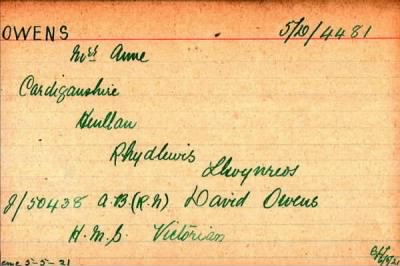 OWENS 5/D/4481
Mrs Anne
Cardiganshire
Henllan
Rhydlewis
Llwynreos
J/50438 A.B (R.N) David Owens
H.M.S Victorian
5-5-21